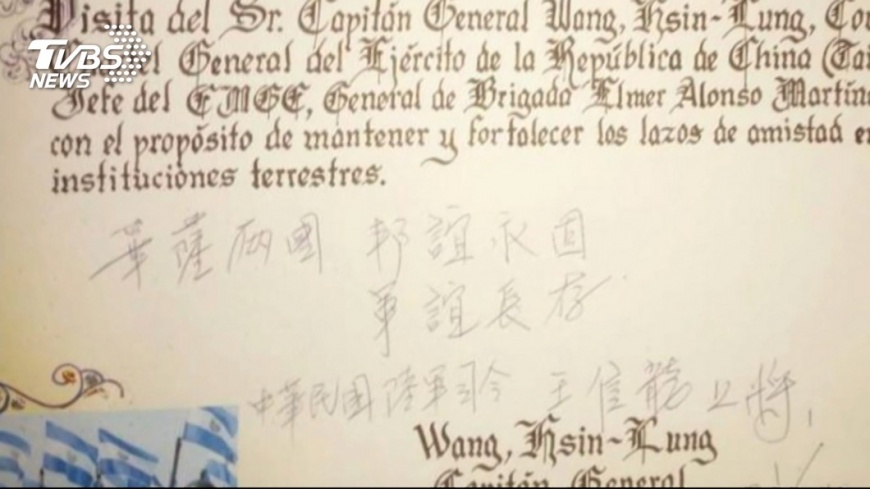 TVBS
NEWS
Visita del Sr. Capitán General Wang, Hsin-Lung,
General del Ejército de la República de China
Jefe del EMGE, General de Brigada Elmer Alonso
con el propósito de mantener y fortalecer los lazos de amistad
instituciones terrestres.
華薩兩國 邦誼永固
軍誼長存
中華民國陸軍司令 王信龍 上將
Wang, Hsin-Lung
Capitán General